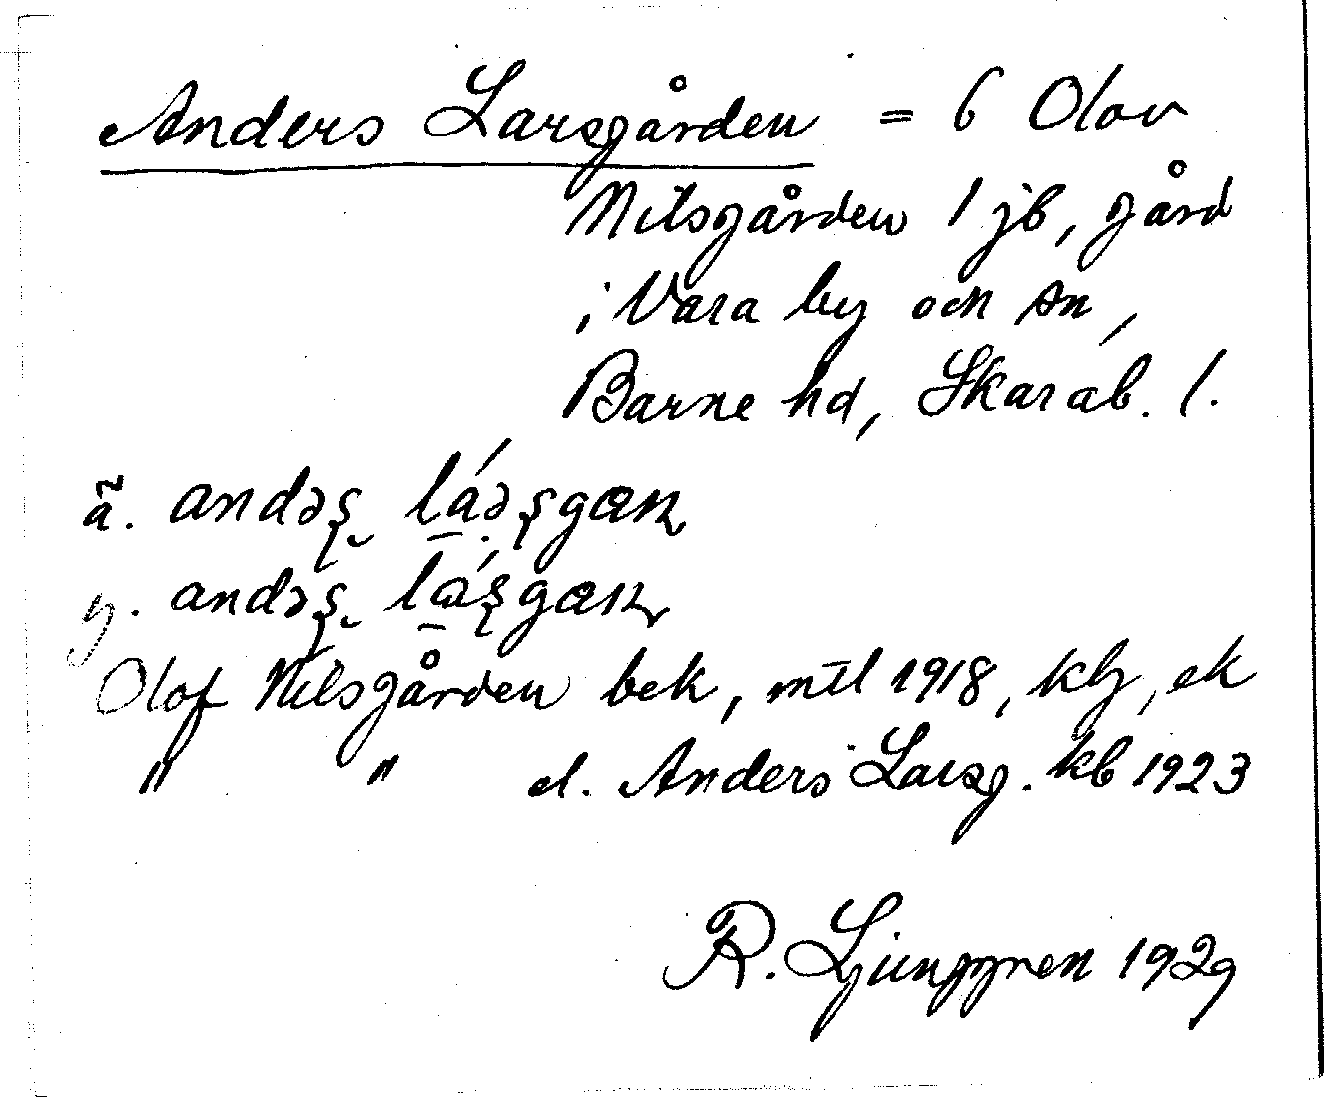 Anders Larsgården = 6 Olov
Nilsgården 1 jb, gård
i Vara by och sn,
Barne hd, Skarab. l.
ä. andəʂ láəʂgæɳ
y. andəʂ láʂgæɳ
Olof Nilsgården bek, mtl 1918, klj, ek
" " el. Anders Larsg. kb 1923
R. Ljunggren 1929